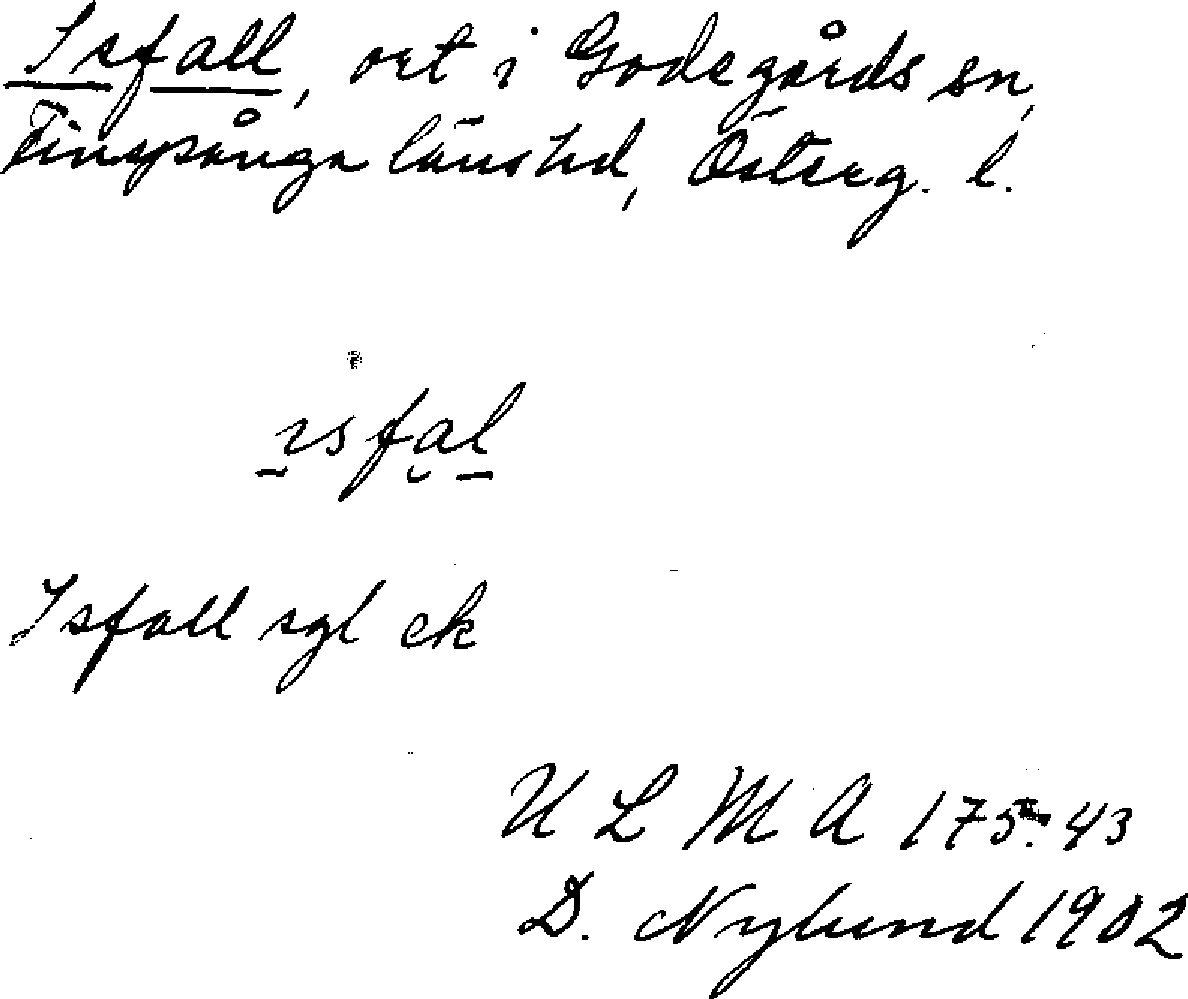 Isfall, ort i Godegårds sn,
Finspånga länshd, Österg. l.
ısfal
Isfall sgl ek
U L M A 175:43
D. Nylund 1902